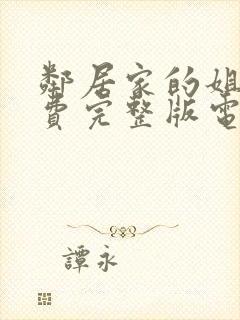 鄰居家的姐
費完整版電
譚永